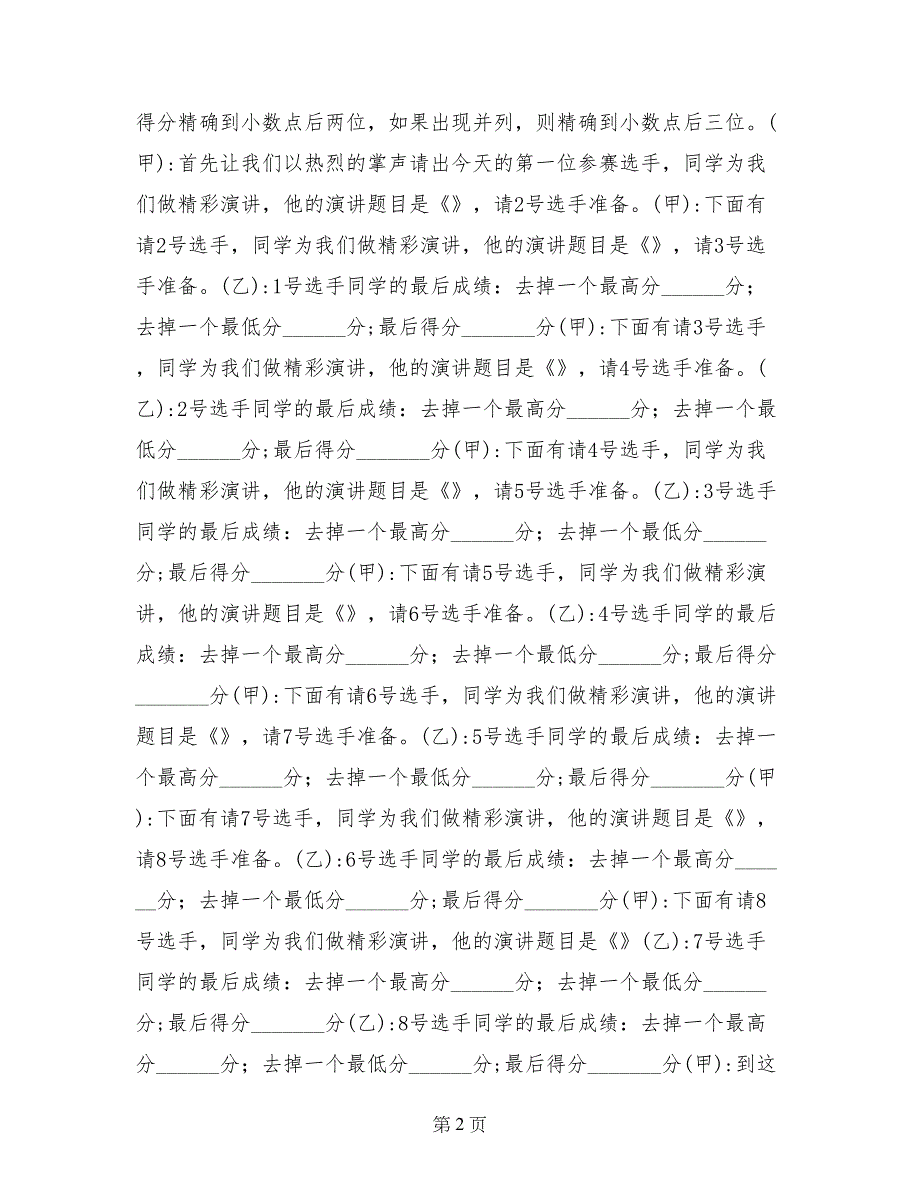 得分精确到小数点后两位，如果出现并列，则精确到小数点后三位。(
甲):首先让我们以热烈的掌声请出今天的第一位参赛选手，同学为我
们做精彩演讲，他的演讲题目是《》，请2号选手准备。(甲):下面有
请2号选手，同学为我们做精彩演讲，他的演讲题目是《》，请3号选
手准备。(乙):1号选手同学的最后成绩：去掉一个最高分______分；
去掉一个最低分______分;最后得分_______分(甲):下面有请3号选手
，同学为我们做精彩演讲，他的演讲题目是《》，请4号选手准备。(
乙):2号选手同学的最后成绩：去掉一个最高分______分；去掉一个最
低分______分;最后得分_______分(甲):下面有请4号选手，同学为我
们做精彩演讲，他的演讲题目是《》，请5号选手准备。(乙):3号选手
同学的最后成绩：去掉一个最高分______分；去掉一个最低分______
分;最后得分_______分(甲):下面有请5号选手，同学为我们做精彩演
讲，他的演讲题目是《》，请6号选手准备。(乙):4号选手同学的最后
成绩：去掉一个最高分______分；去掉一个最低分______分;最后得分
_______分(甲):下面有请6号选手，同学为我们做精彩演讲，他的演讲
题目是《》，请7号选手准备。(乙):5号选手同学的最后成绩：去掉一
个最高分______分；去掉一个最低分______分;最后得分_______分(甲
):下面有请7号选手，同学为我们做精彩演讲，他的演讲题目是《》，
请8号选手准备。(乙):6号选手同学的最后成绩：去掉一个最高分____
__分；去掉一个最低分______分;最后得分_______分(甲):下面有请8
号选手，同学为我们做精彩演讲，他的演讲题目是《》(乙):7号选手
同学的最后成绩：去掉一个最高分______分；去掉一个最低分______
分;最后得分_______分(乙):8号选手同学的最后成绩：去掉一个最高
分______分；去掉一个最低分______分;最后得分_______分(甲):到这
第 2 页